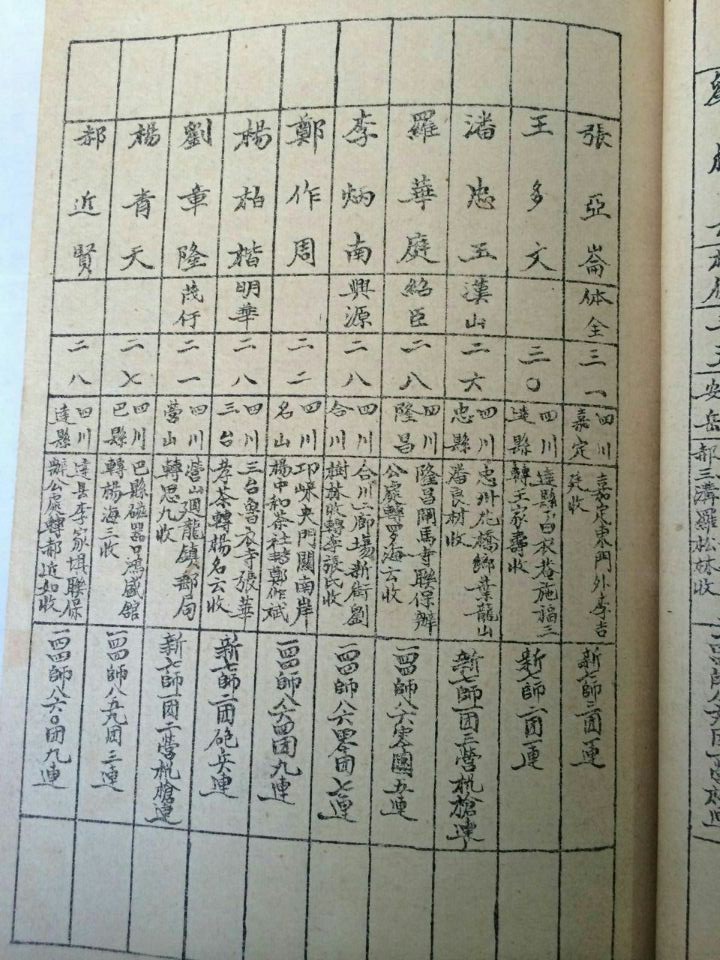 張亞崙
体全
三一
四川
嘉定
嘉定東門外李吉
廷收
新七師二团一連
王多文
三〇
四川
達縣
達縣白衣菴施福三
轉王家壽收
新七師一团一連
潘忠玉
漢山
二六
四川
忠縣
忠州花橋鄉葉龍山
潘良材收
新七師一团三营机槍連
羅華庭
紹臣
二八
四川
隆昌
隆昌開馬寺聯保辦
公處轉罗海云收
一四四師八六零團五連
李炳南
興源
二八
四川
合川
合川二郎場新街劉
樹林收轉李張氏收
一四四師八六零团七連
鄭作周
二二
四川
名山
邛崍夹門關南岸
楊中和茶社轉鄭作斌
一四四師八六四团九連
楊柏楷
明華
二八
四川
三台
三台魯衣寺張華
孝茶轉楊名云收
新七師一团砲兵連
劉章隆
茂行
二一
四川
營山
營山迴龍鎮郵局
轉思九收
新七師一团二营机槍連
楊青天
二七
四川
巴縣
巴縣磁器口鴻盛舘
轉楊海三收
一四四師八五九团三連
郝近賢
二八
四川
達縣
達县李家垻聯保
辦公處轉郝近如收
一四四師八六〇团九連
安岳
三溝羅松林收